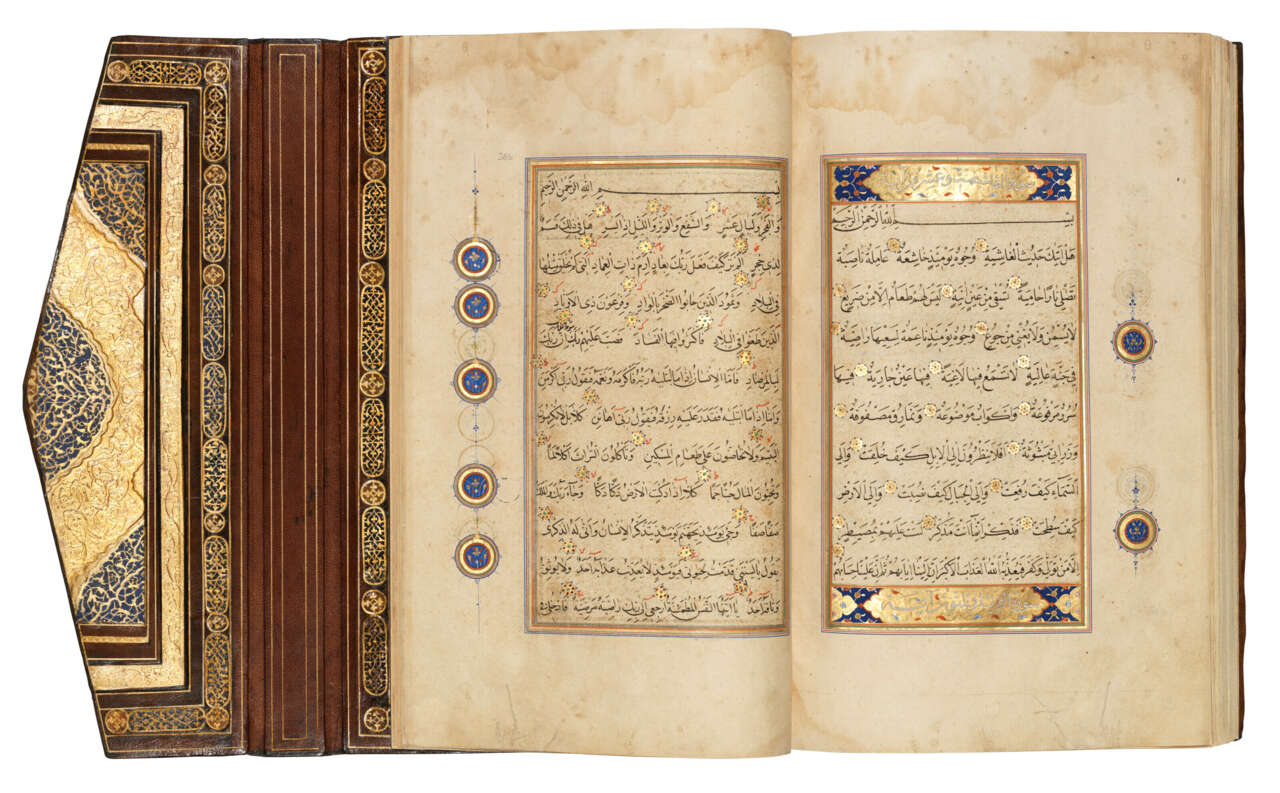 بسم الله الرحمن الرحيم
هل اتيك حديث الغاشية وجوه يومئذ خاشعة عاملة ناصبة
تصلى نارا حامية تسقى من عين انية ليس لهم طعام الا من ضريع
لا يسمن ولا يغنى من جوع وجوه يومئذ ناعمة لسعيها راضية
فى جنة عالية لا تسمع فيها لاغية فيها عين جارية فيها
سرر مرفوعة واكواب موضوعة ونمارق مصفوفة
وزرابى مبثوثة افلا ينظرون الى الابل كيف خلقت والى
السماء كيف رفعت والى الجبال كيف نصبت والى الارض
كيف سطحت فذكر انما انت مذكر لست عليهم بمصيطر
الا من تولى وكفر فيعذبه الله العذاب الاكبر ان الينا ايابهم ثم ان علينا حسابهم
بسم الله الرحمن الرحيم
والفجر وليال عشر والشفع والوتر والليل اذا يسر هل فى ذلك قسم
لذى حجر الم تر كيف فعل ربك بعاد ارم ذات العماد التى لم يخلق مثلها
فى البلاد وثمود الذين جابوا الصخر بالواد وفرعون ذى الاوتاد
الذين طغوا فى البلاد فاكثروا فيها الفساد فصب عليهم ربك ان ربك
لبالمرصاد فاما الانسان اذا ما ابتليه ربه فاكرمه ونعمه فيقول ربى اكرمن
واما اذا ما ابتليه فقدر عليه رزقه فيقول ربى اهانن كلا بل لا تكرمون
اليتيم ولا تحاضون على طعام المسكين وتاكلون التراث اكلا لما
وتحبون المال حبا جما كلا اذا دكت الارض دكا دكا وجاء ربك والملك
صفا صفا وجىء يومئذ بجهنم يومئذ يتذكر الانسان وانى له الذكرى
يقول يا ليتنى قدمت لحياتى فيومئذ لا يعذب عذابه احد ولا يوثق
وثاقه احد يا ايتها النفس المطمئنة ارجعى الى ربك راضية مرضية فادخلى فى